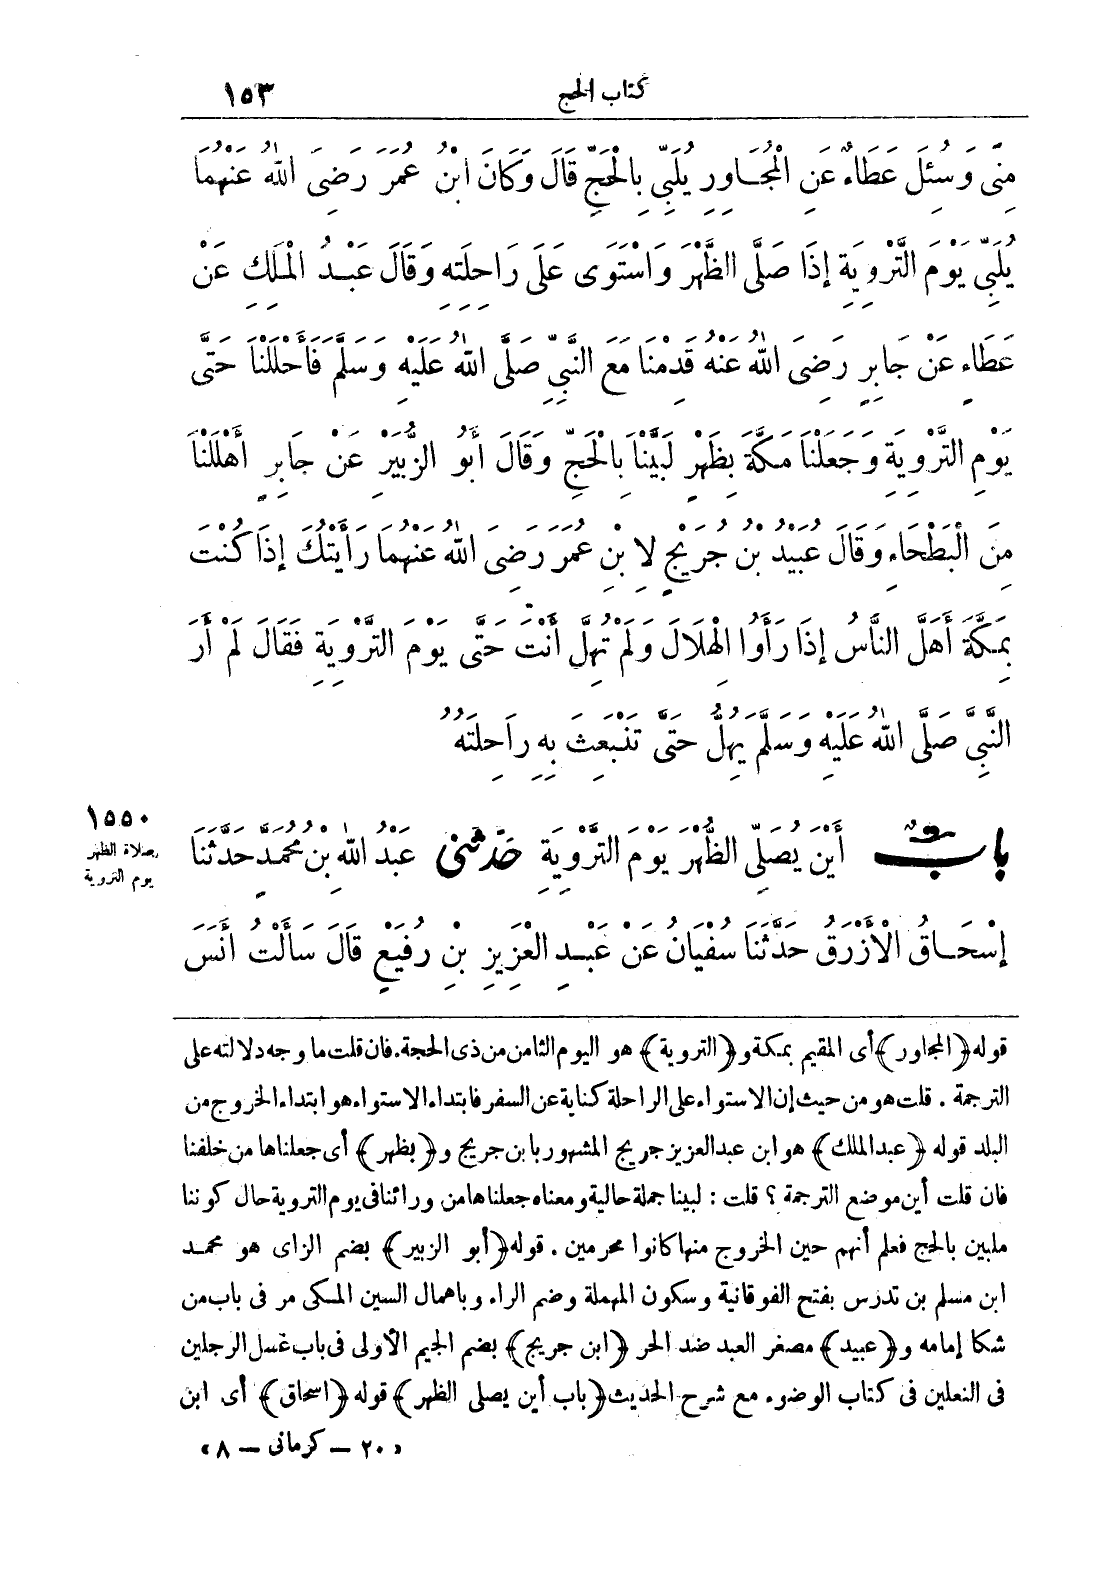 كتاب الحج ١٥٣
مِنًى وَسُئِلَ عَطَاءٌ عَنِ الْمُجَاوِرِ يُلَبِّي بِالْحَجِّ قَالَ وَكَانَ ابْنُ عُمَرَ رَضِىَ اللهُ عَنْهُمَا
يُلَبِّي يَوْمَ التَّرْوِيَةِ إِذَا صَلَّى الظُّهْرَ وَاسْتَوَى عَلَى رَاحِلَتِهِ وَقَالَ عَبْدُ الْمَلِكِ عَنْ
عَطَاءٍ عَنْ جَابِرٍ رَضِىَ اللهُ عَنْهُ قَدِمْنَا مَعَ النَّبِيِّ صَلَّى اللهُ عَلَيْهِ وَسَلَّمَ فَأَحْلَلْنَا حَتَّى
يَوْمِ التَّرْوِيَةِ وَجَعَلْنَا مَكَّةَ بِظَهْرٍ لَبَّيْنَا بِالْحَجِّ وَقَالَ أَبُو الزُّبَيْرِ عَنْ جَابِرٍ أَهْلَلْنَا
مِنَ الْبَطْحَاءِ وَقَالَ عُبَيْدُ بْنُ جُرَيْجٍ لِابْنِ عُمَرَ رَضِىَ اللهُ عَنْهُمَا رَأَيْتُكَ إِذَا كُنْتَ
بِمَكَّةَ أَهَلَّ النَّاسُ إِذَا رَأَوُا الْهِلَالَ وَلَمْ تُهِلَّ أَنْتَ حَتَّى يَوْمَ التَّرْوِيَةِ فَقَالَ لَمْ أَرَ
النَّبِيَّ صَلَّى اللهُ عَلَيْهِ وَسَلَّمَ يُهِلُّ حَتَّى تَنْبَعِثَ بِهِ رَاحِلَتُهُ
بابٌ أَيْنَ يُصَلِّي الظُّهْرَ يَوْمَ التَّرْوِيَةِ حَدَّثَنِي عَبْدُ اللهِ بْنُ مُحَمَّدٍ حَدَّثَنَا
١٥٥٠
صلاة الظهر
يوم التروية
إِسْحَاقُ الْأَزْرَقُ حَدَّثَنَا سُفْيَانُ عَنْ عَبْدِ الْعَزِيزِ بْنِ رُفَيْعٍ قَالَ سَأَلْتُ أَنَسَ
قوله ﴿المجاور﴾ أى المقيم بمكة و﴿التروية﴾ هو اليوم الثامن من ذى الحجة. فان قلت ما وجه دلالته على
الترجمة . قلت هو من حيث إن الاستواء على الراحلة كناية عن السفر فابتداء الاستواء هو ابتداء الخروج من
البلد قوله ﴿عبد الملك﴾ هو ابن عبد العزيز جريج المشهور بابن جريج و﴿بظهر﴾ أى جعلناها من خلفنا
فان قلت أين موضع الترجمة ؟ قلت : لبينا جملة حالية ومعناه جعلناها من ورائنا فى يوم التروية حال كوننا
ملبين بالحج فعلم أنهم حين الخروج منها كانوا محرمين . قوله ﴿أبو الزبير﴾ بضم الزاى هو محمد
ابن مسلم بن تدرس بفتح الفوقانية وسكون المهملة وضم الراء وباهمال السين المكى مر فى باب من
شكا إمامه و﴿عبيد﴾ مصغر العبد ضد الحر ﴿ابن جريج﴾ بضم الجيم الأولى فى باب غسل الرجلين
فى النعلين فى كتاب الوضوء مع شرح الحديث ﴿باب أين يصلى الظهر﴾ قوله ﴿اسحاق﴾ أى ابن
« ٢٠ – كرمانى – ٨ »